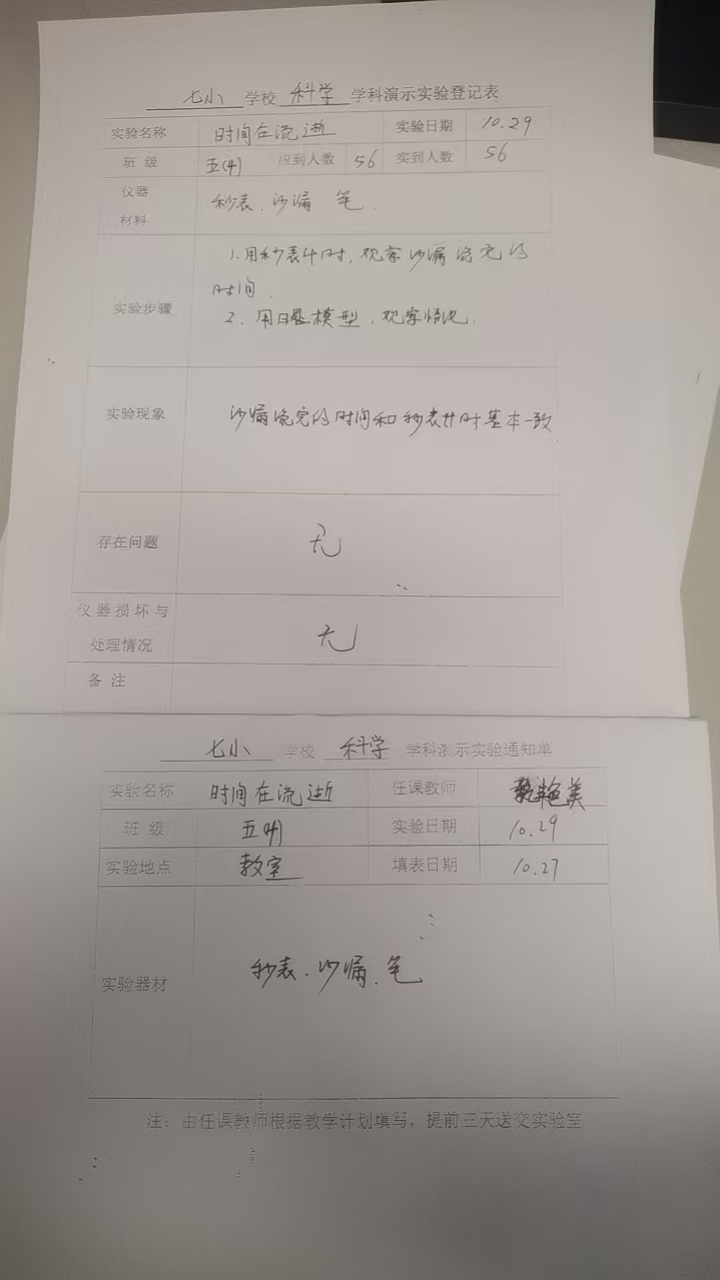 七小 学校 科学 学科演示实验登记表
实验名称 时间在流逝 实验日期 10.29
班 级 五(4) 应到人数 56 实到人数 56
仪器
材料
秒表、沙漏 笔
实验步骤
1.用秒表计时,观察沙漏流完的
时间.
2.用日晷模型,观察情况.
实验现象 沙漏流完的时间和秒表计时基本一致
存在问题 无
仪器损坏与
处理情况
无
备 注
七小 学校 科学 学科演示实验通知单
实验名称 时间在流逝 任课教师 艳美
班 级 五(4) 实验日期 10.29
实验地点 教室 填表日期 10.27
实验器材 秒表、沙漏、笔
注:由任课教师根据教学计划填写,提前三天送交实验室